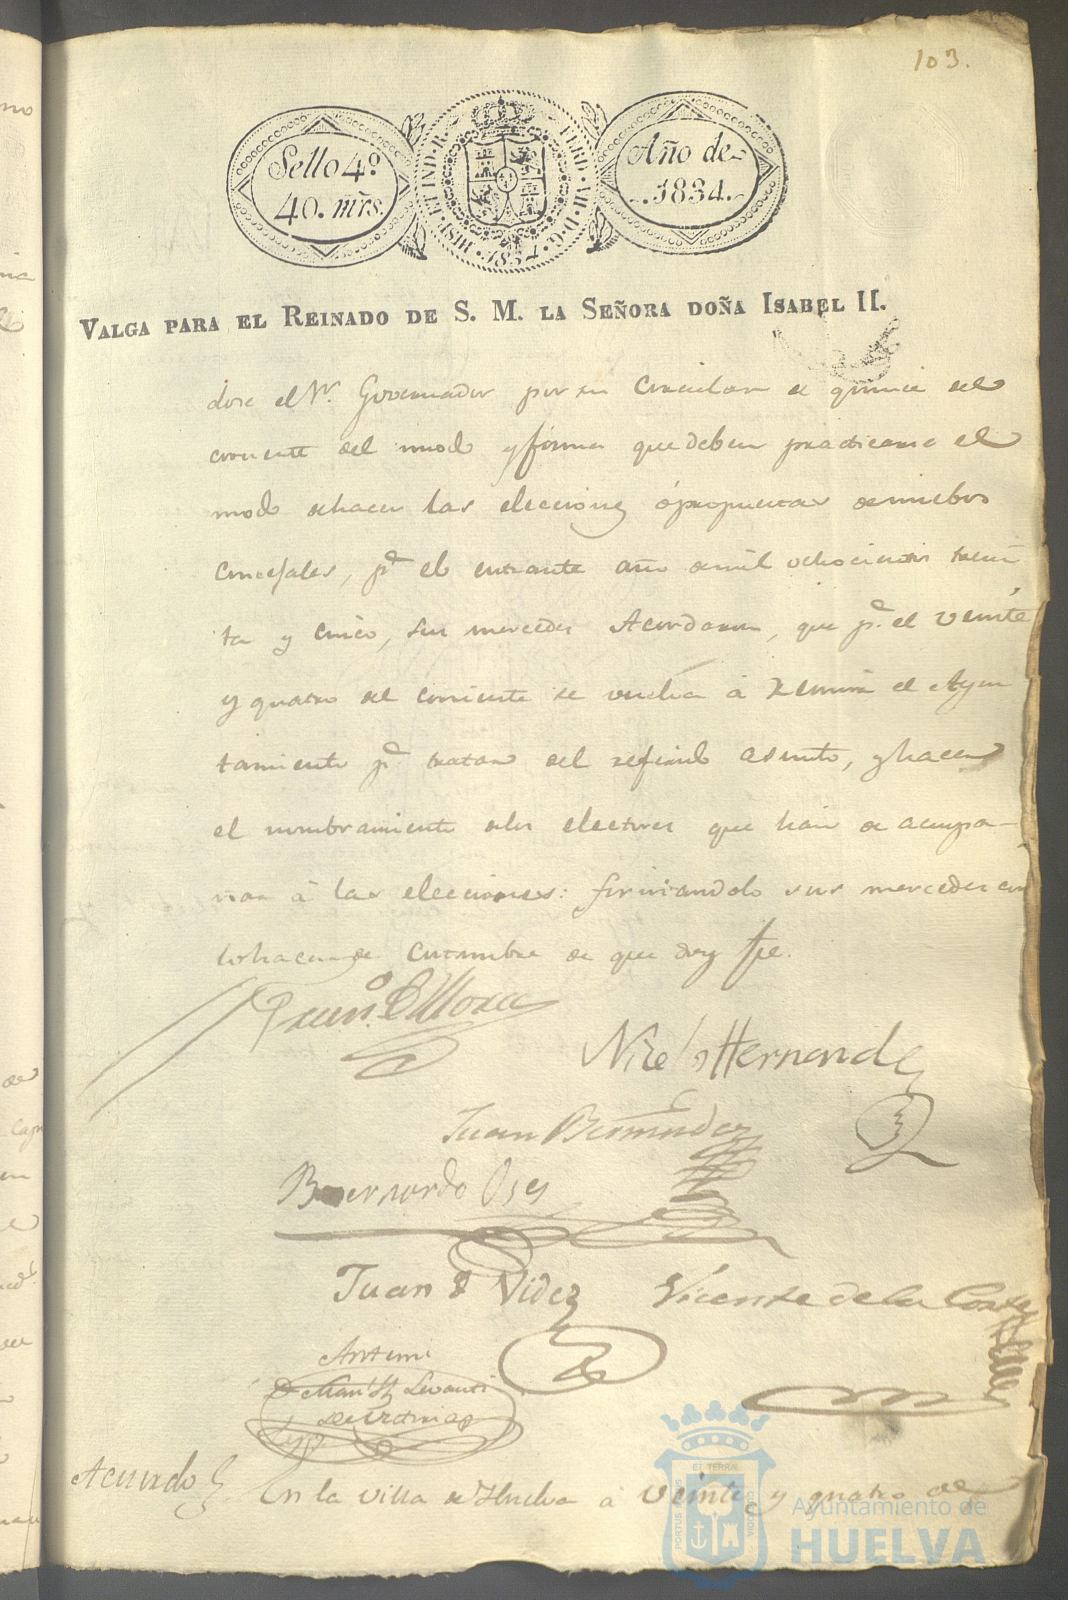 103.
Sello 4º
40. mrs.
HISP. ET IND. R. FERD. VII. D. G. 1834
Año de
1834.
VALGA PARA EL REINADO DE S. M. LA SEÑORA DOÑA ISABEL II.
dose el Sr. Governador por su Circular de quince del
corriente del modo y forma que deben practicarse el
modo de hacer las elecciones ó propuestas de nuebos
Concejales, pª el entrante año de mil ochocientos trein
ta y cinco, sus mercedes Acordaron, que pª el veinte
y quatro del corriente se vuelva á reunir el Ayun
tamiento pª tratar del referido asunto, y hacer
el nombramiento de los electores que han de acompa-
ñar á las elecciones: firmandolo sus mercedes
de Costumbre de que doy fe.
Nicolas Hernandez
Juan Bermudez
Bernardo
Juan Videz
Vicente de la Corte
Antemi
Acuerdo
En la villa de Huelva á veinte y quatro de
PORTUS MARIS ET TERRAE CUSTODIA
Ayuntamiento de
HUELVA